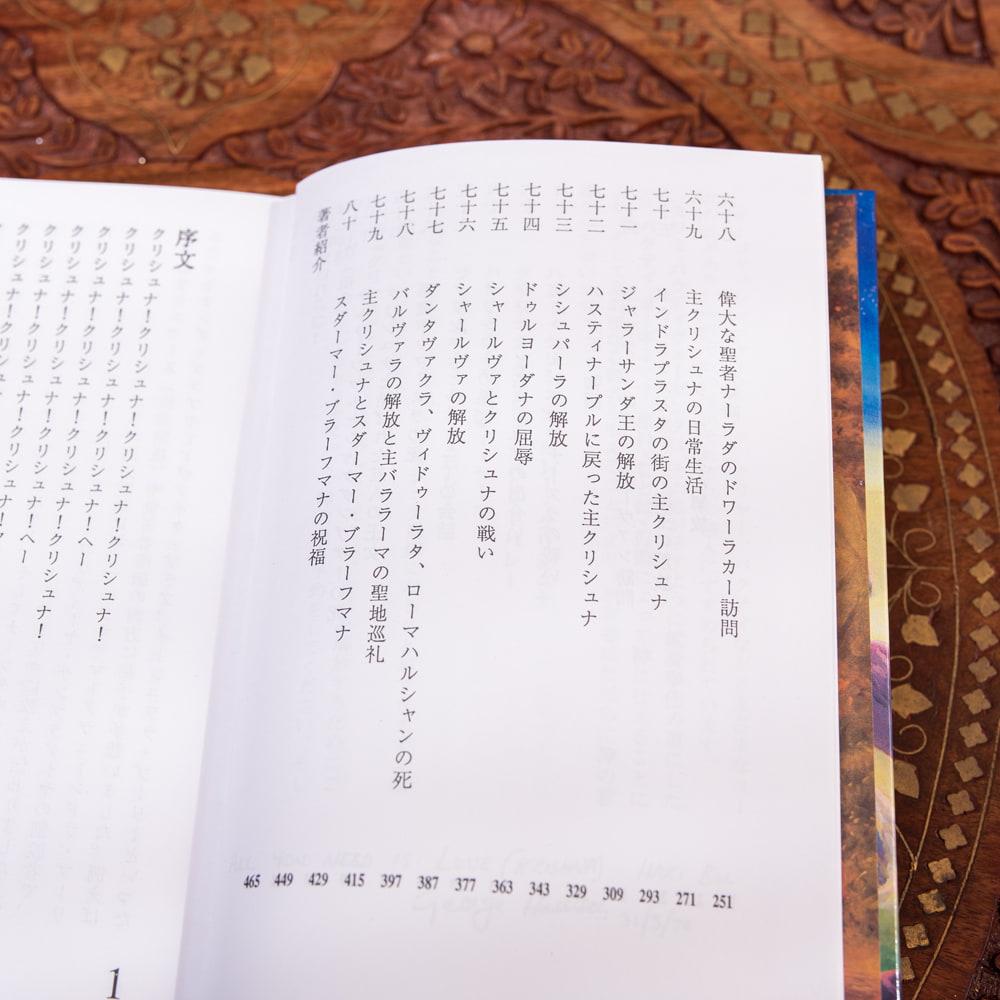 六十八 偉大な聖者ナーラダのドワーラカー訪問 251
六十九 主クリシュナの日常生活 271
七十 インドラプラスタの街の主クリシュナ 293
七十一 ジャラーサンダ王の解放 309
七十二 ハスティナープルに戻った主クリシュナ 329
七十三 シシュパーラの解放 343
七十四 ドゥルヨーダナの屈辱 363
七十五 シャールヴァとクリシュナの戦い 377
七十六 シャールヴァの解放 387
七十七 ダンタヴァクラ、ヴィドゥーラタ、ローマハルシャンの死 397
七十八 バルヴァラの解放と主バララーマの聖地巡礼 415
七十九 主クリシュナとスダーマー・ブラーフマナ 429
八十 スダーマー・ブラーフマナの祝福 449
著者紹介 465
序文
クリシュナ!クリシュナ!クリシュナ!
クリシュナ!クリシュナ!ヘー
クリシュナ!クリシュナ!クリシュナ!
クリシュナ!クリシュナ!ヘー
クリシュナ!クリシュナ!ク
1